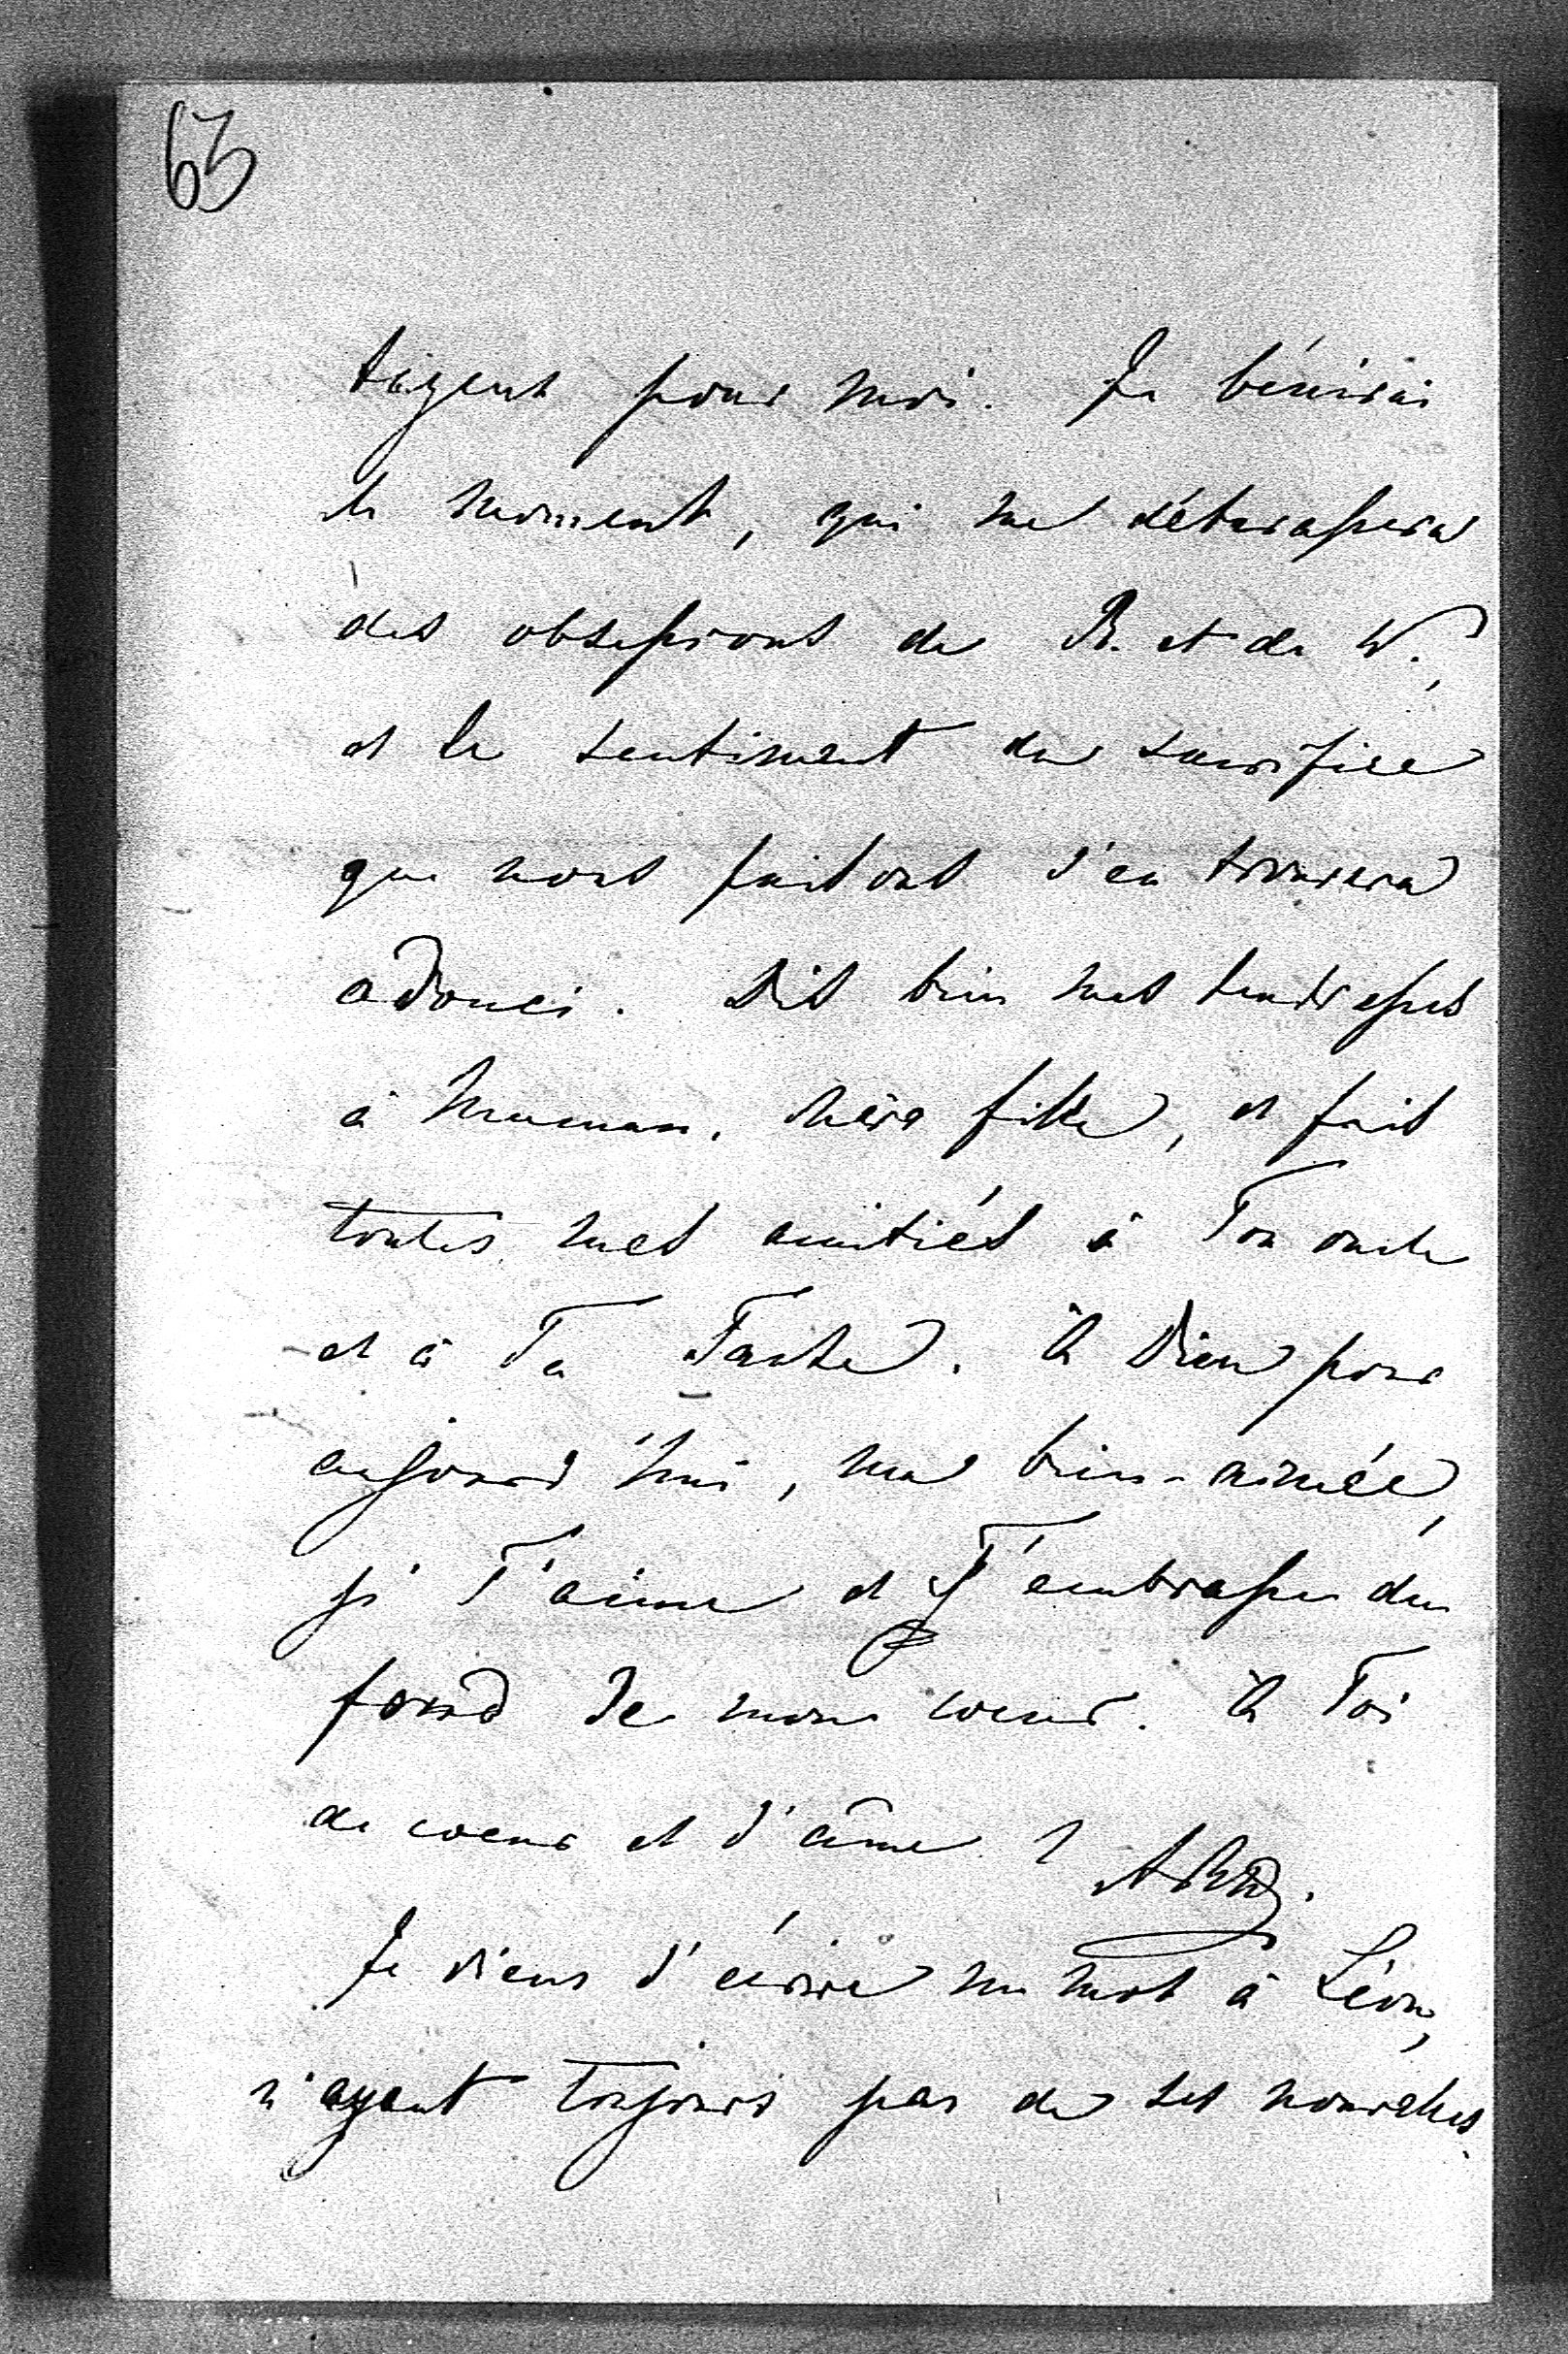 63
tigent pour moi. Je bénirai
le moment, qui me débarassera
des obsessions de R. et de W.,
et le sentiment du sacrifice
que nous faisons s'en trouvera
adouci. Dis bien mes tendresses
à Maman, chère fille, et fais
toutes mes amitiés à Ton oncle
et à Ta Tante. A Dieu pour
aujourd'hui, ma bien-aimée,
je T'aime et T'embrasse du
fond de mon coeur. A Toi
de coeur et d'âme
Je viens d'écrire un mot à Léon,
n'ayant toujours pas de ses nouvelles.